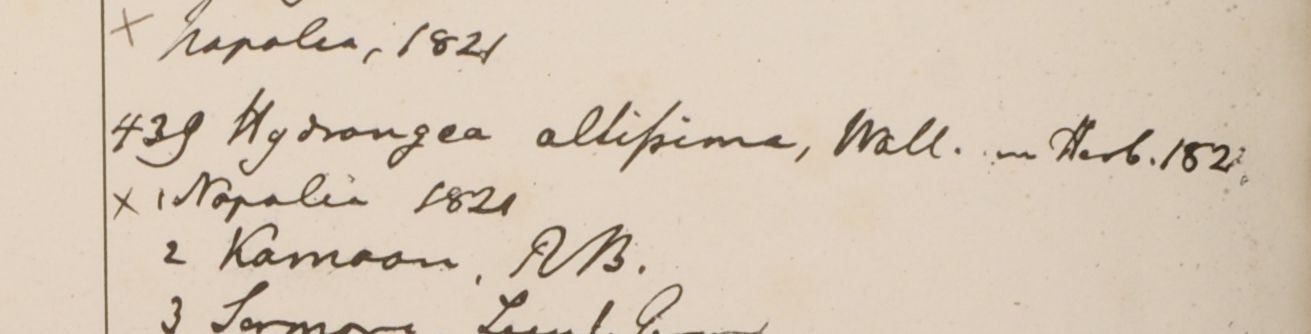 × Napalia, 1821
439 Hydrangea altissima, Wall. in Herb. 182
× 1 Napalia 1821
2 Kamaon, RB.
3 Sermore